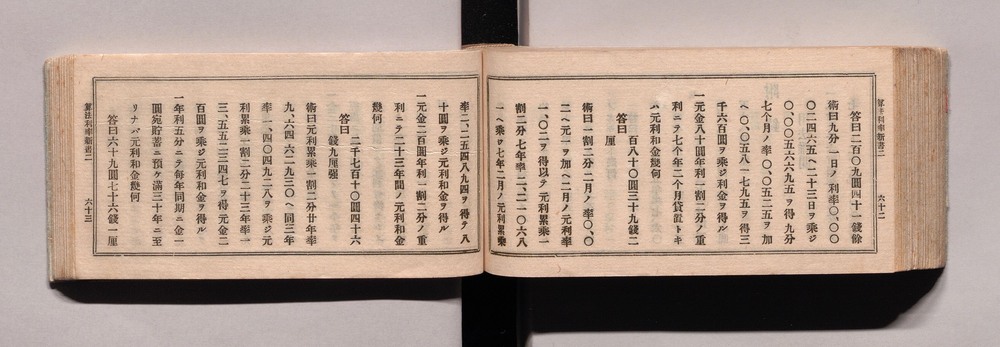 算法利率新書二
六十二
答曰二百〇九圓四十一錢餘
術曰九分一日ノ利率〇、〇〇
〇二四六五ヘ二十三日ヲ乘ジ
〇、〇〇五六六九五ヲ得九分
七個月ノ率〇、〇五二五ヲ加
ヘ〇、〇五八一七九五ヲ得三
千六百圓ヲ乘ジ利金ヲ得ル
一元金八十圓年利一割二分ノ重
利ニテ七年二個月貸置トキ
ハ元利和金幾何
答曰
百八十〇圓三十九錢二
厘
術曰一割二分二月ノ率〇、〇
二ヘ元一ヲ加ヘ二月ノ元利率
一、〇二ヲ得以テ元利累乘一
割二分七年率二、二一〇六八
一ヘ乘ジ七年二月ノ元利累乘
率二、二五四八九四ヲ得テ八
十圓ヲ乘ジ元利和金ヲ得ル
一元金二百圓年利一割二分ノ重
利ニテ二十三年間ノ元利和金
幾何
答曰
二千七百十〇圓四十六
錢九厘强
術曰元利累乘一割二分廿年率
九、六四六二九三〇ヘ同三年
率一、四〇四九二八ヲ乘ジ元
利累乘一割二分二十三年率一
三、五五二三四七ヲ得元金二
百圓ヲ乘ジ元利和金ヲ得ル
一年利五分ニテ每年同期ニ金一
圓宛貯蓄ニ預ケ滿三十年ニ至
リナバ元利和金幾何
答曰六十九圓七十六錢一厘
算法利率新書二
六十三